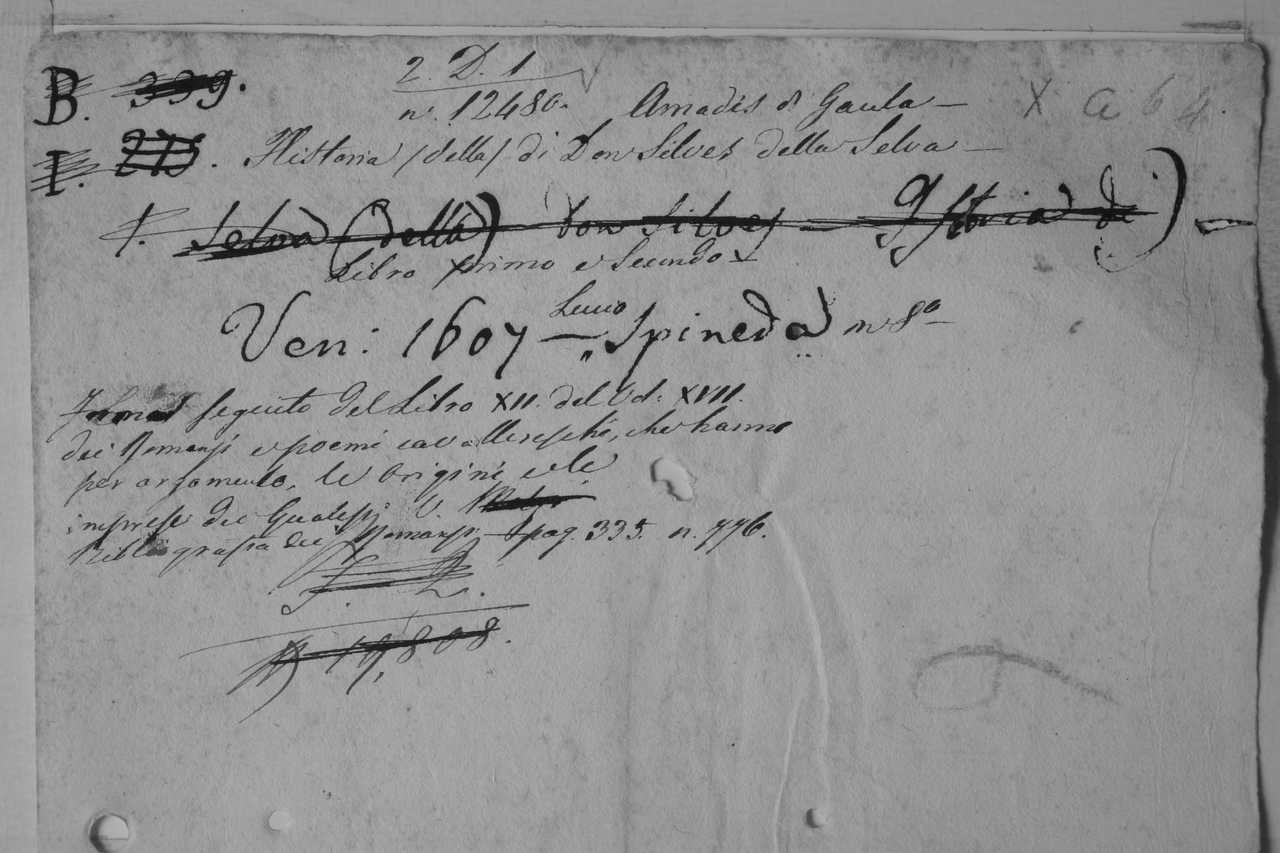 2. D. 1
B. 339.
n. 12480. Amadis di Gaula — X a 6 4.
I. 275. Historia (della) di Don Silves della Selva —
1. Selva (della) Don Silves — Istoria di) —
Libro primo e secondo
Ven: 1607 — Lucio Spineda in 8º —
seguito del Libro XII. del Vol. XVII.
dei Romanzi e poemi cavallereschi, che hanno
per argomento, le origini, e le
imprese dei Gualesi V.
Bibliografia dei Romanzi pag. 335. n. 776.
19,808.